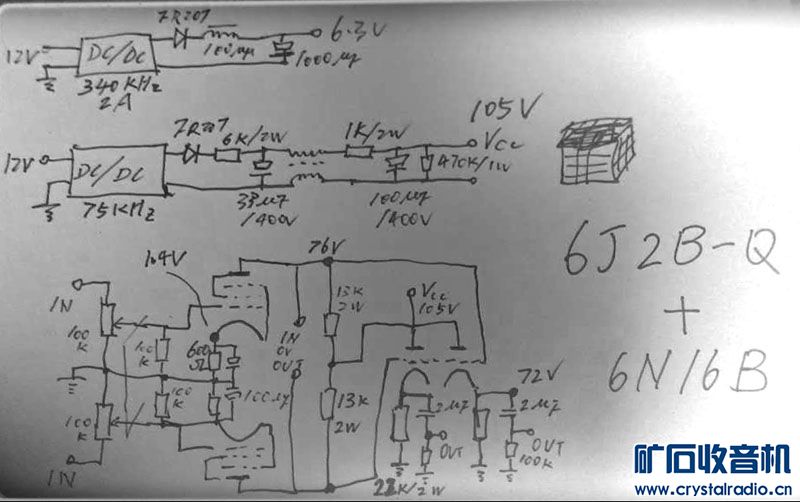 7R207
12V
DC/DC
6.3V
100μH
1000μf
340KHz
2A
105V
7R207
6K/2W
1K/2W
Vcc
12V
DC/DC
470K/1W
75KHz
33μf
/400V
100μf
/400V
6J2B-Q
+
6N16B
1.4V
76V
IN
100
K
100
K
600
Ω
IN
OUT
13K
2W
Vcc
105V
72V
100
K
100
K
100μf
13K
2W
2μf
2μf
OUT
OUT
100K
IN
22K/2W
矿石收音机
www.crystalradio.cn